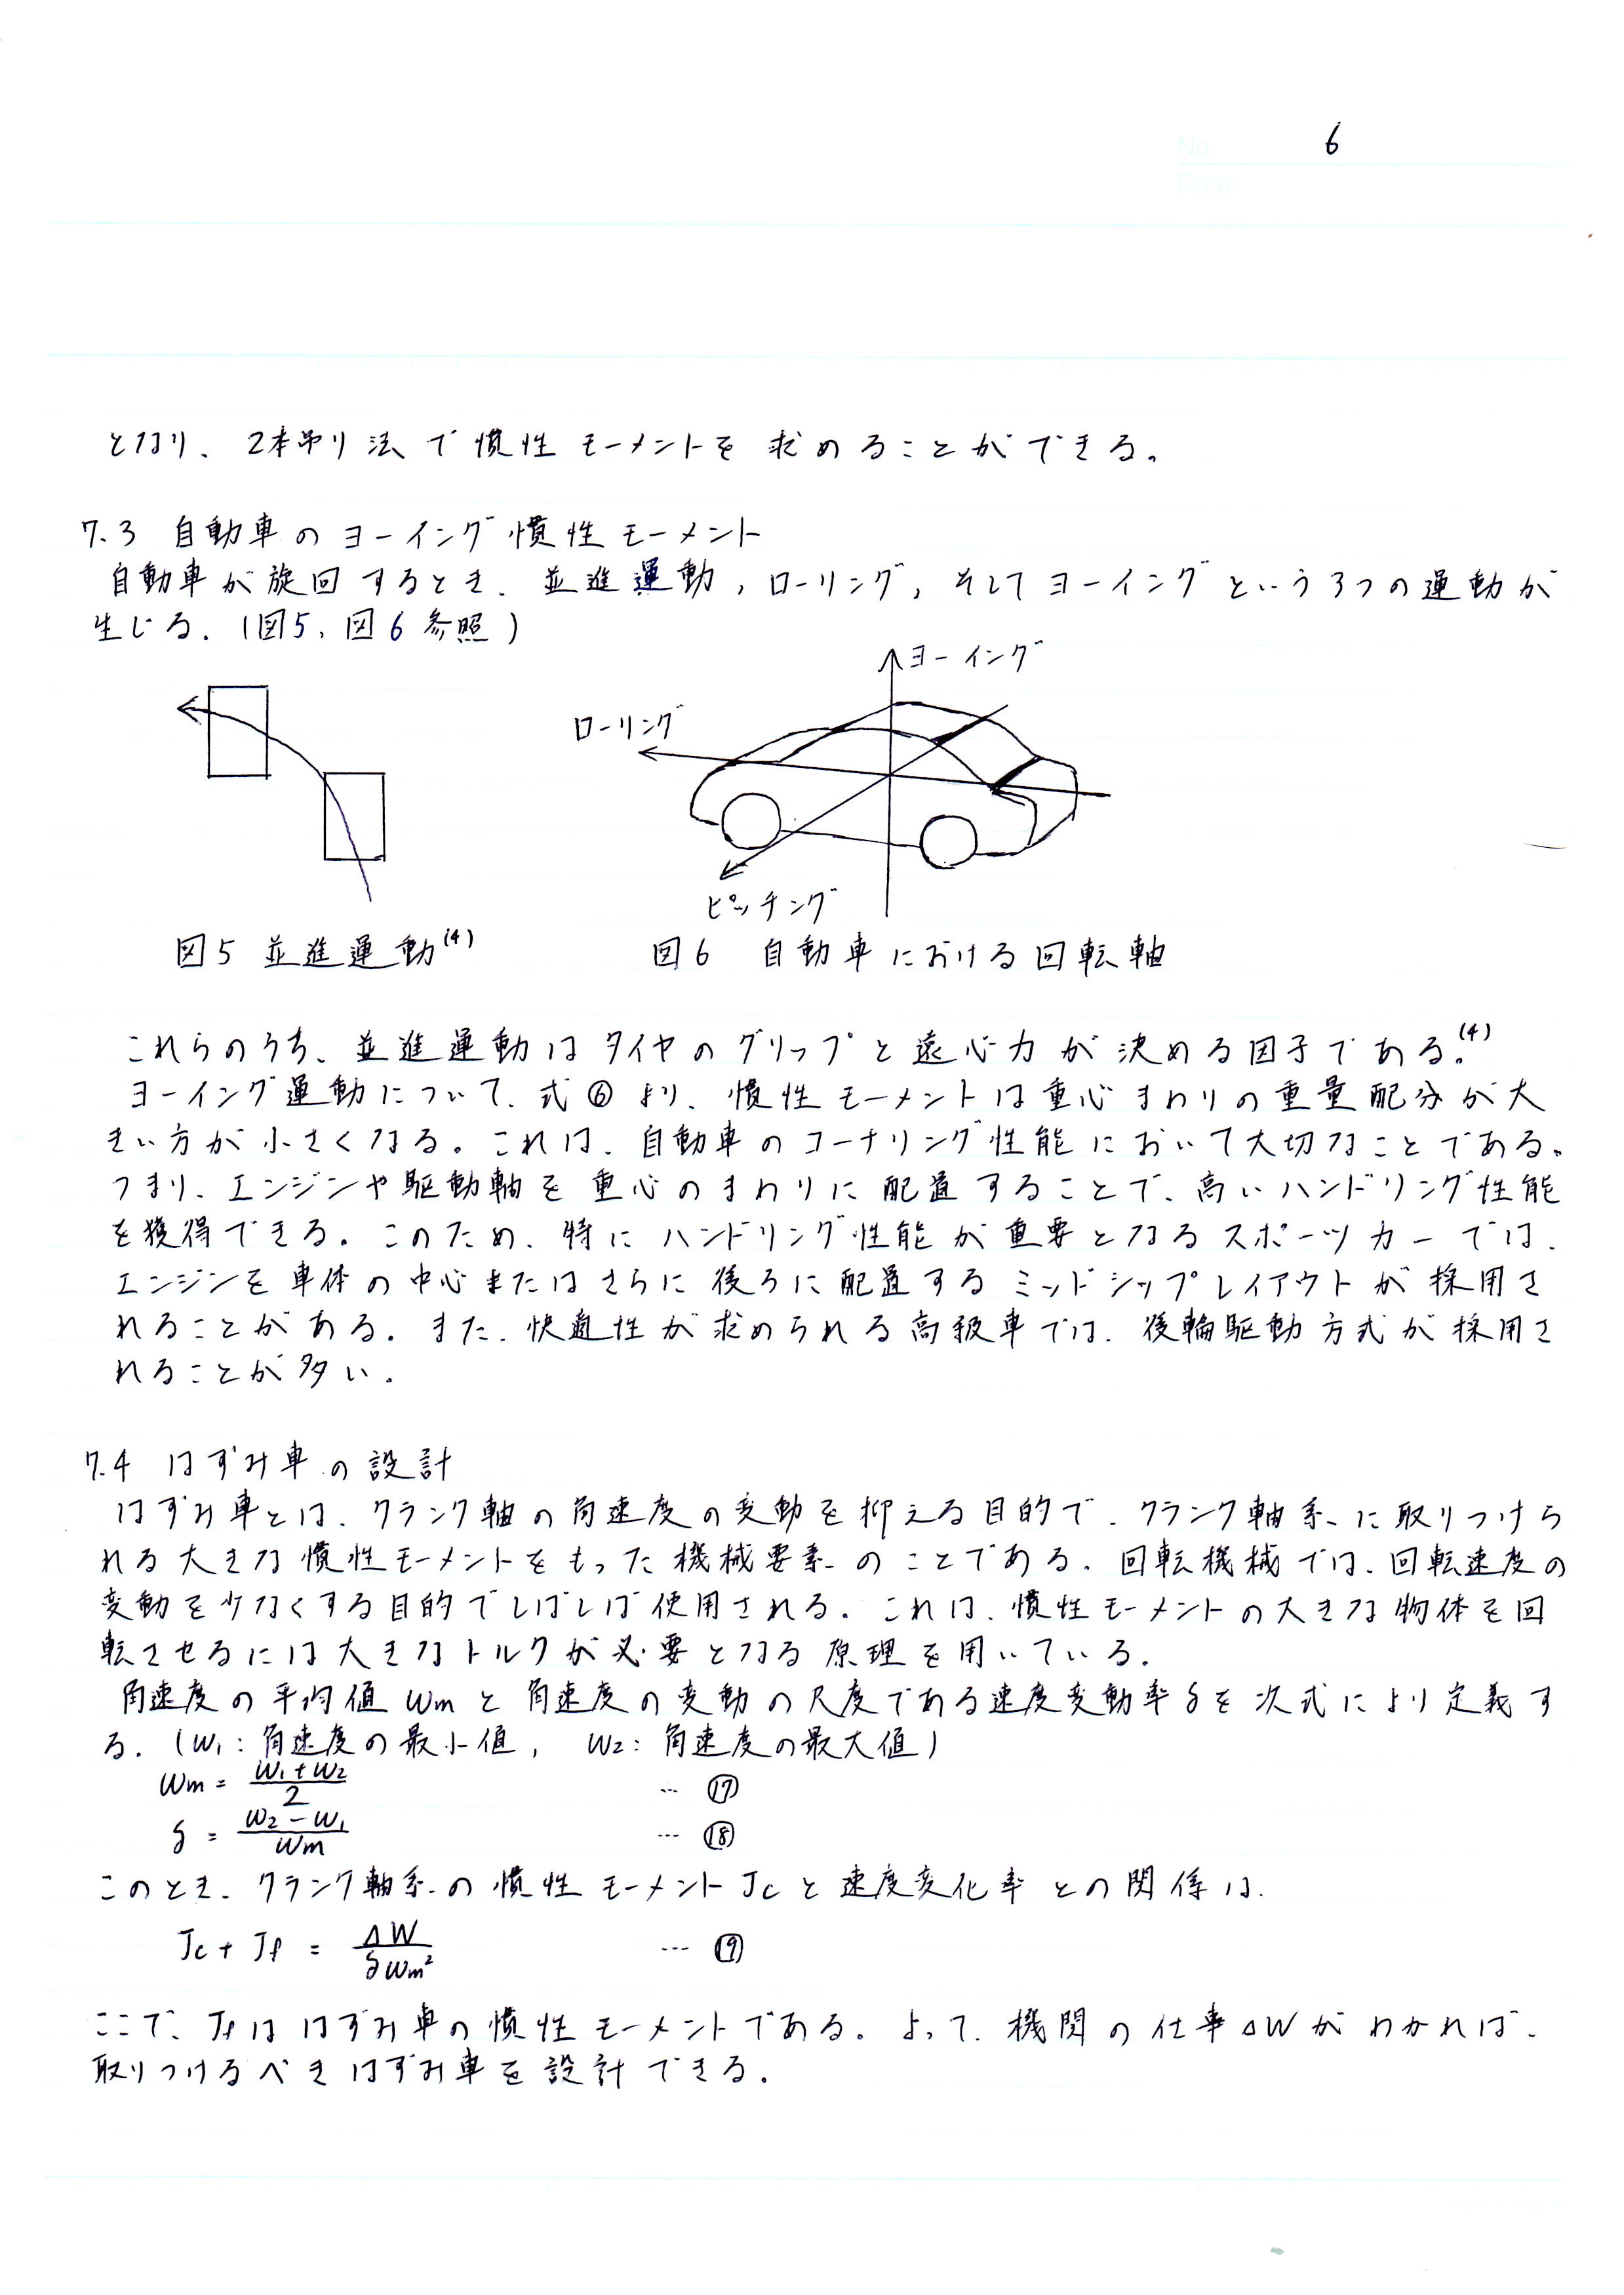 No. 6
Date
となり、2本吊り法で慣性モーメントを求めることができる。
7.3 自動車のヨーイング慣性モーメント
自動車が旋回するとき、並進運動,ローリング,そしてヨーイングという3つの運動が
生じる.(図5,図6参照)
ヨーイング
ローリング
ピッチング
図5 並進運動(4)
図6 自動車における回転軸
これらのうち、並進運動はタイヤのグリップと遠心力が決める因子である。(4)
ヨーイング運動について、式⑥より、慣性モーメントは重心まわりの重量配分が大
きい方が小さくなる。これは、自動車のコーナリング性能において大切なことである。
つまり、エンジンや駆動軸を重心のまわりに配置することで、高いハンドリング性能
を獲得できる。このため、特にハンドリング性能が重要となるスポーツカーでは、
エンジンを車体の中心またはさらに後ろに配置するミッドシップレイアウトが採用さ
れることがある。また、快適性が求められる高級車では、後輪駆動方式が採用さ
れることが多い.
7.4 はずみ車の設計
はずみ車とは、クランク軸の角速度の変動を抑える目的で、クランク軸系に取りつけら
れる大きな慣性モーメントをもった機械要素のことである.回転機械では、回転速度の
変動を少なくする目的でしばしば使用される.これは、慣性モーメントの大きな物体を回
転させるには大きなトルクが必要となる原理を用いている.
角速度の平均値ωmと角速度の変動の尺度である速度変動率δを次式により定義す
る.(ω₁:角速度の最小値, ω₂:角速度の最大値)
ωm = (ω₁+ω₂)/2 … ⑰
δ = (ω₂-ω₁)/ωm … ⑱
このとき、クランク軸系の慣性モーメントJcと速度変化率との関係は、
Jc + Jf = ΔW/(δωm²) … ⑲
ここで、Jfははずみ車の慣性モーメントである。よって、機関の仕事ΔWがわかれば、
取りつけるべきはずみ車を設計できる.